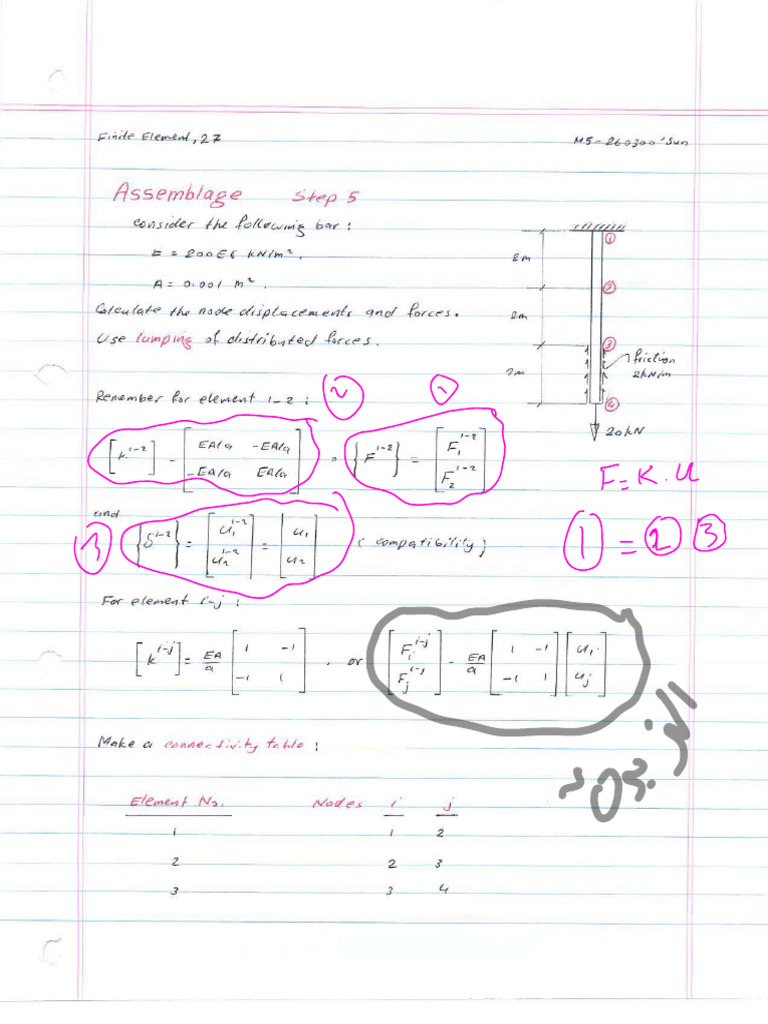 Finite Element, 27
M5-260300'Sun
Assemblage Step 5
consider the following bar:
E = 200E6 kN/m².
A = 0.001 m².
Calculate the node displacements and forces.
Use lumping of distributed forces.
2m
2m
2m
1
2
3
4
friction
2kN/m
20 kN
Remember for element 1-2:
[k¹⁻²] = [EA/a -EA/a
-EA/a EA/a] , {F¹⁻²} = [F₁¹⁻²
F₂¹⁻²]
F = K.U
and
{δ¹⁻²} = [u₁¹⁻²
u₂¹⁻²] = [u₁
u₂] (compatibility)
1 = 2 3
For element i-j:
[kⁱ⁻ʲ] = EA/a [1 -1
-1 1] , or [Fᵢⁱ⁻ʲ
Fⱼⁱ⁻ʲ] = EA/a [1 -1
-1 1] [uᵢ
uⱼ]
Make a connectivity table:
Element No. Nodes i j
1 1 2
2 2 3
3 3 4